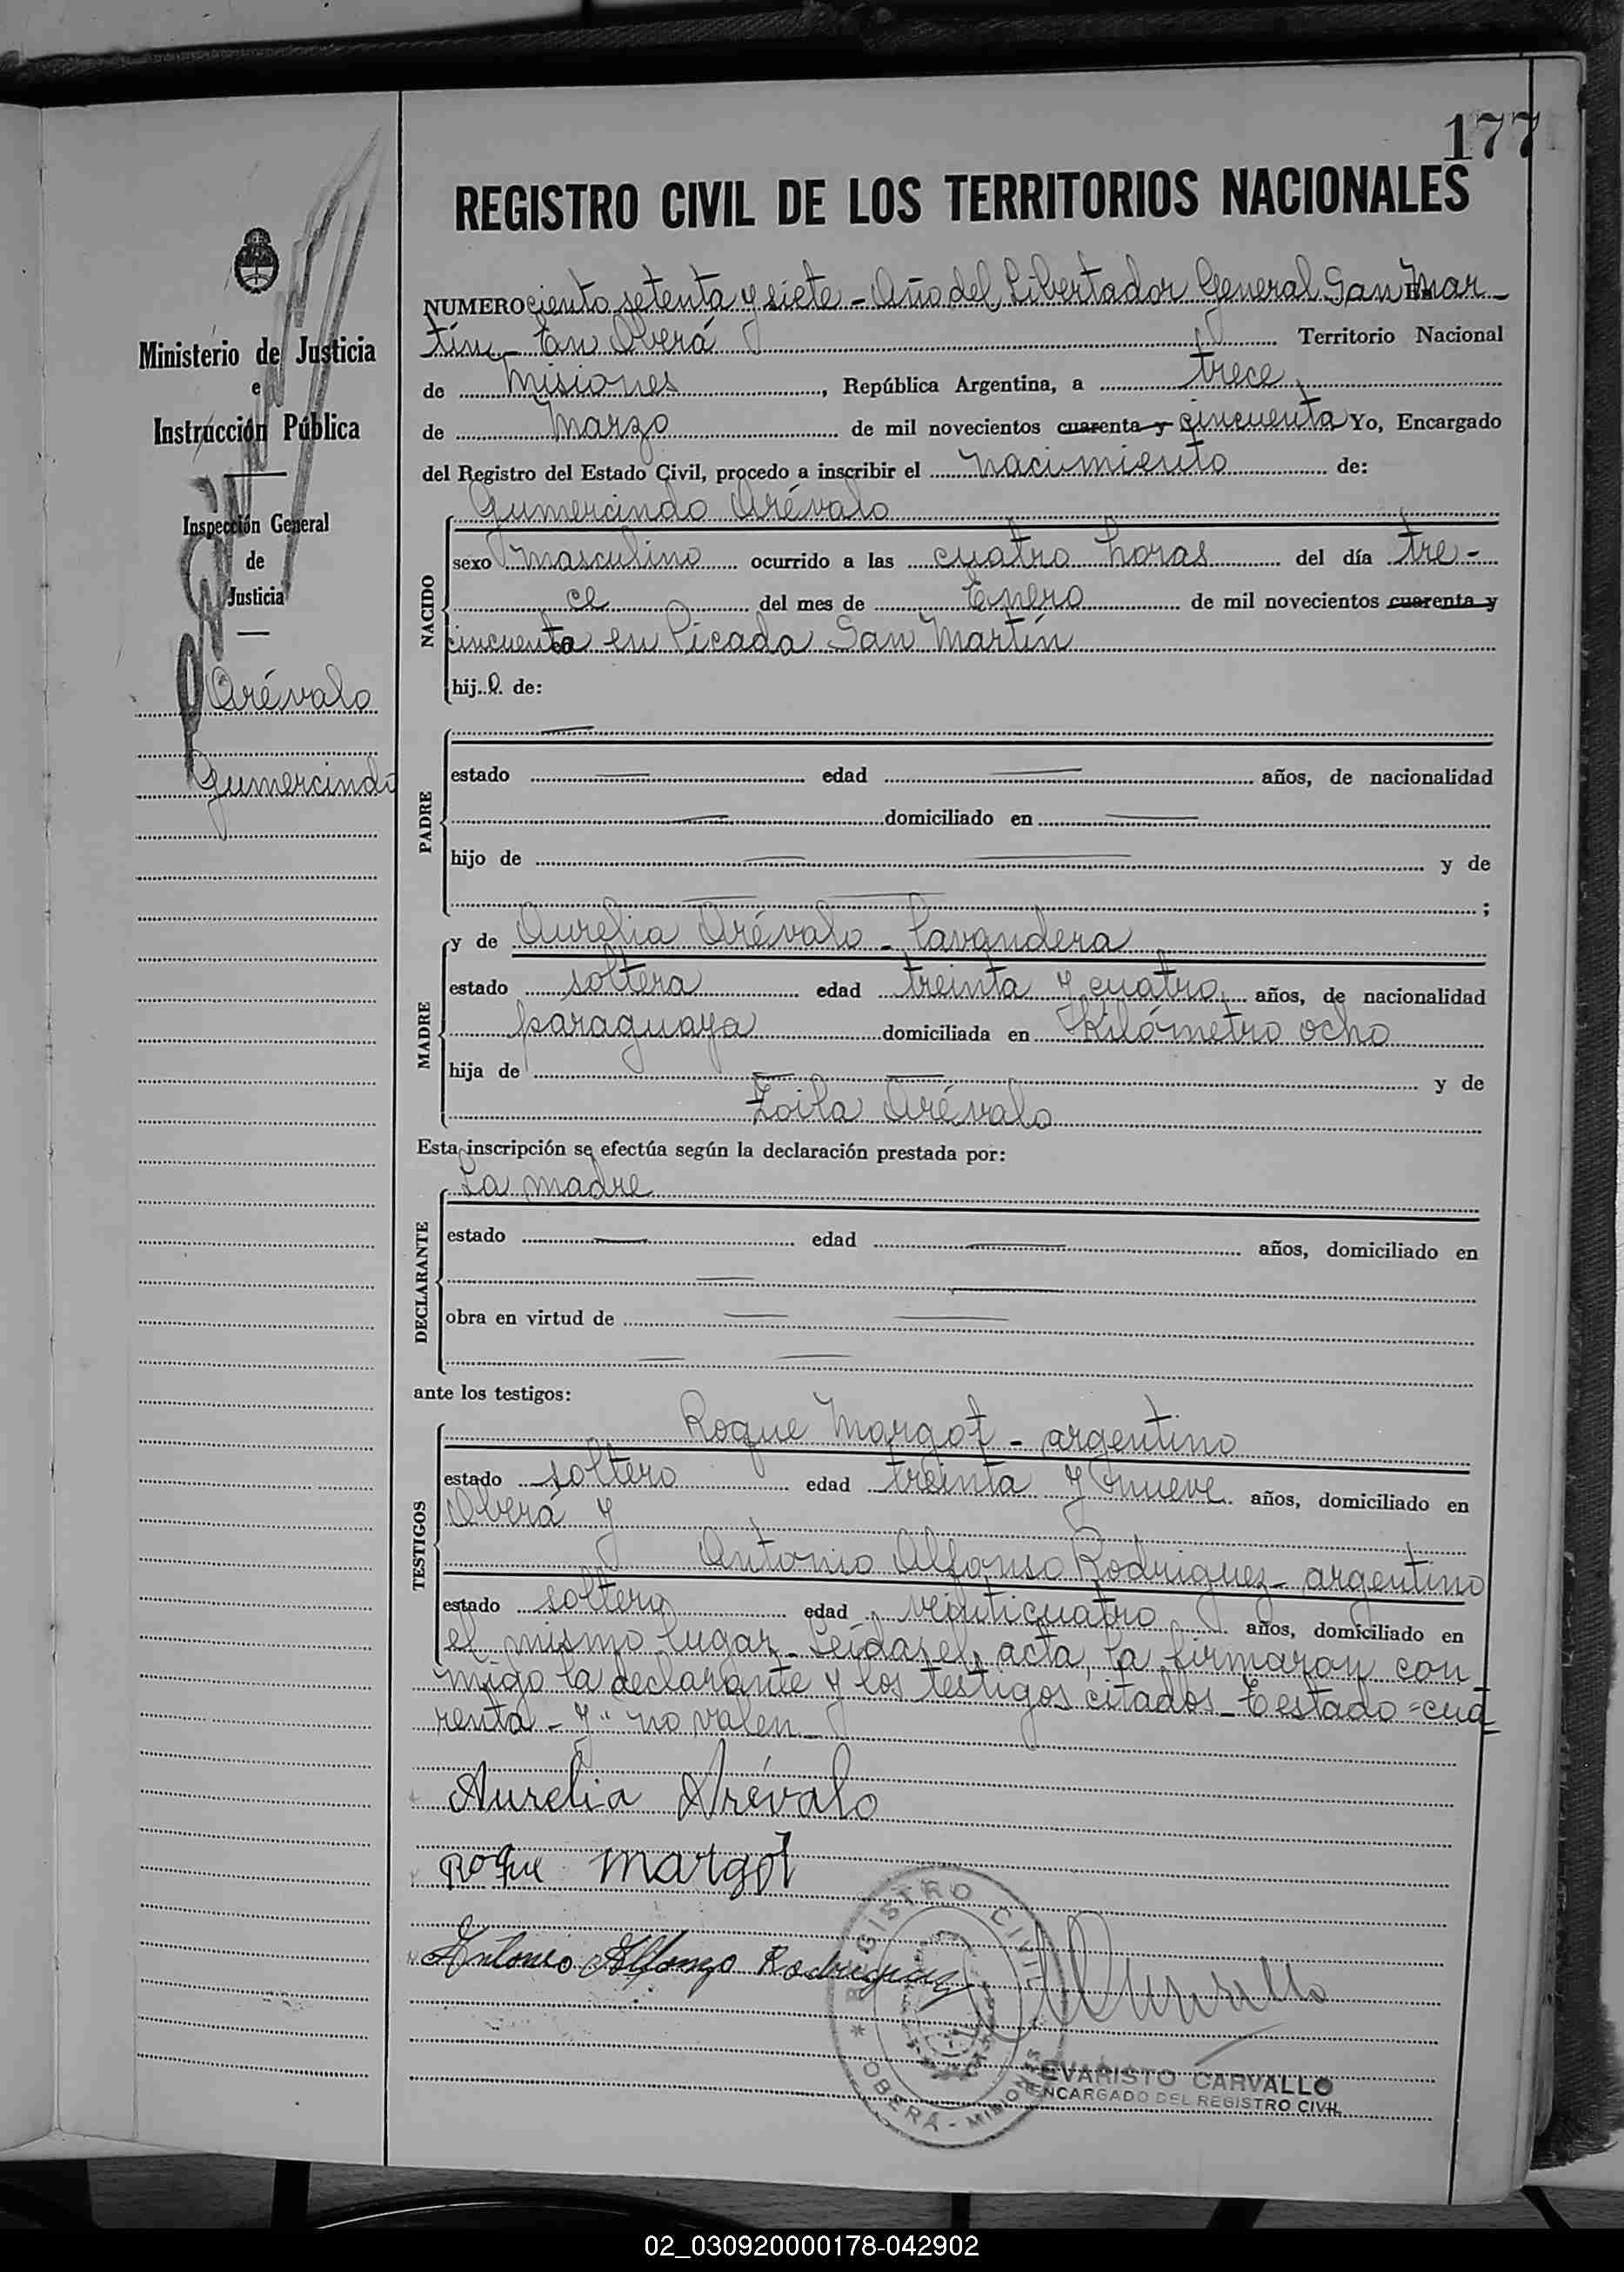 177
REGISTRO CIVIL DE LOS TERRITORIOS NACIONALES
NUMERO ciento setenta y siete - Año del Libertador General San Mar-
tín - En Oberá Territorio Nacional
de Misiones, República Argentina, a trece
de Marzo de mil novecientos cuarenta y cincuenta Yo, Encargado
del Registro del Estado Civil, procedo a inscribir el nacimiento de:
Gumercindo Arévalo
NACIDO
sexo masculino ocurrido a las cuatro horas del día tre-
ce del mes de Enero de mil novecientos cuarenta y
cincuenta en Picada San Martín
hijo de:
PADRE
estado edad años, de nacionalidad
domiciliado en
hijo de y de
;
MADRE
y de Aurelia Arévalo - Lavandera
estado soltera edad treinta y cuatro años, de nacionalidad
paraguaya domiciliada en Kilómetro ocho
hija de y de
Zoila Arévalo
Esta inscripción se efectúa según la declaración prestada por:
La madre
DECLARANTE
estado edad años, domiciliado en
obra en virtud de
ante los testigos:
TESTIGOS
Roque Margot - argentino
estado soltero edad treinta y nueve años, domiciliado en
Oberá y
Antonio Alfonso Rodriguez - argentino
estado soltero edad veinticuatro años, domiciliado en
el mismo lugar - Leídas el acta, la firmaron con
migo la declarante y los testigos citados - Testado = cua
renta - y" no valen -
Aurelia Arévalo
Roque margot
Antonio Alfonzo Rodriguez
REGISTRO CIVIL
OBERÁ - MISIONES
EVARISTO CARVALLO
ENCARGADO DEL REGISTRO CIVIL
Ministerio de Justicia
e
Instrucción Pública
Inspección General
de
Justicia
Arévalo
Gumercindo
02_030920000178-042902